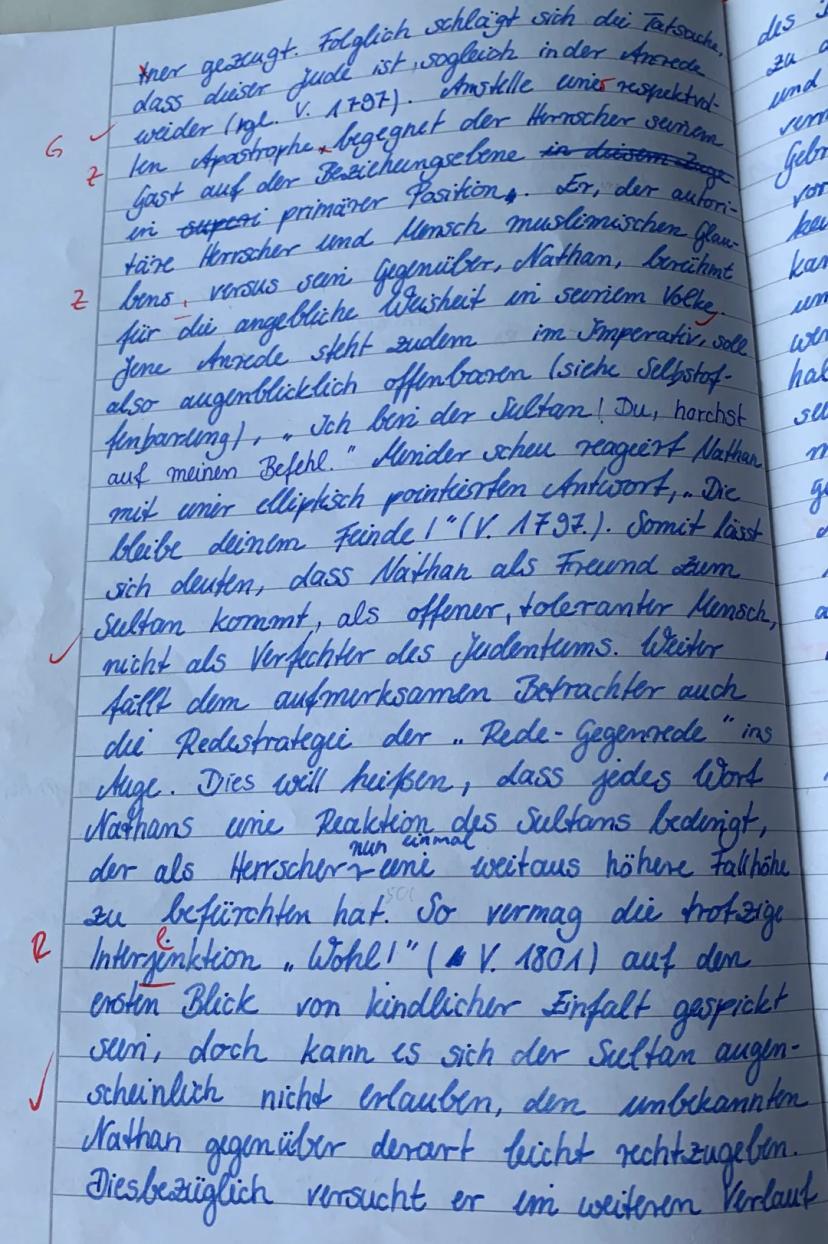 ner gezeugt. Folglich schlägt sich die Tatsache,
dass dieser Jude ist, sogleich in der Anrede
weider (vgl. V. 1797). Anstelle eines respektvol-
G ✓
len Apastrophe, begegnet der Herrscher seinem
Z
Gast auf der Beziehungsebene in diesem Zuge
in superi primärer Position. Er, der autori-
täre Herrscher und Mensch muslimischen Glau-
Z
bens, versus sein Gegenüber, Nathan, berühmt
für die angebliche Weisheit in seinem Volke.
Jene Anrede steht zudem im Imperativ, soll
also augenblicklich offenbaren (siehe Selbstof-
fenbarung), „Ich bin der Sultan! Du, horchst
auf meinen Befehl." Minder scheu reagiert Nathan
mit einer elliptisch pointierten Antwort, „Die
bleibe deinem Feinde!" (V. 1797.). Somit lässt
sich deuten, dass Nathan als Freund zum
Sultan kommt, als offener, toleranter Mensch,
✓
nicht als Verfechter des Judentums. Weiter
fällt dem aufmerksamen Betrachter auch
die Redestrategie der „Rede-Gegenrede" ins
Auge. Dies will heißen, dass jedes Wort
Nathans eine Reaktion des Sultans bedingt,
nun einmal
der als Herrscher eine weitaus höhere Fallhöhe
zu befürchten hat. So vermag die trotzige
R e
Interjenktion „Wohl!" (V. 1801) auf den
ersten Blick von kindlicher Einfalt gespickt
sein, doch kann es sich der Sultan augen-
✓
scheinlich nicht erlauben, dem unbekannten
Nathan gegenüber derart leicht rechtzugeben.
Diesbezüglich versucht er im weiteren Verlauf
des
zu
und
Gebr
vor
kan
um
hal